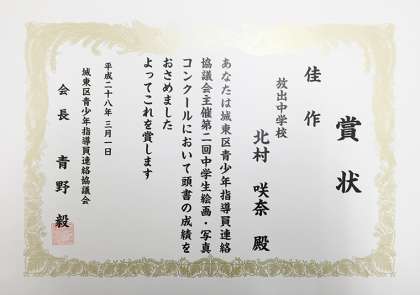 賞状
佳作
放出中学校
北村 咲奈 殿
あなたは城東区青少年指導員連絡
協議会主催第二回中学生絵画・写真
コンクールにおいて頭書の成績を
おさめました
よってこれを賞します
平成二十八年 三月一日
城東区青少年指導員連絡協議会
会長 青野 毅